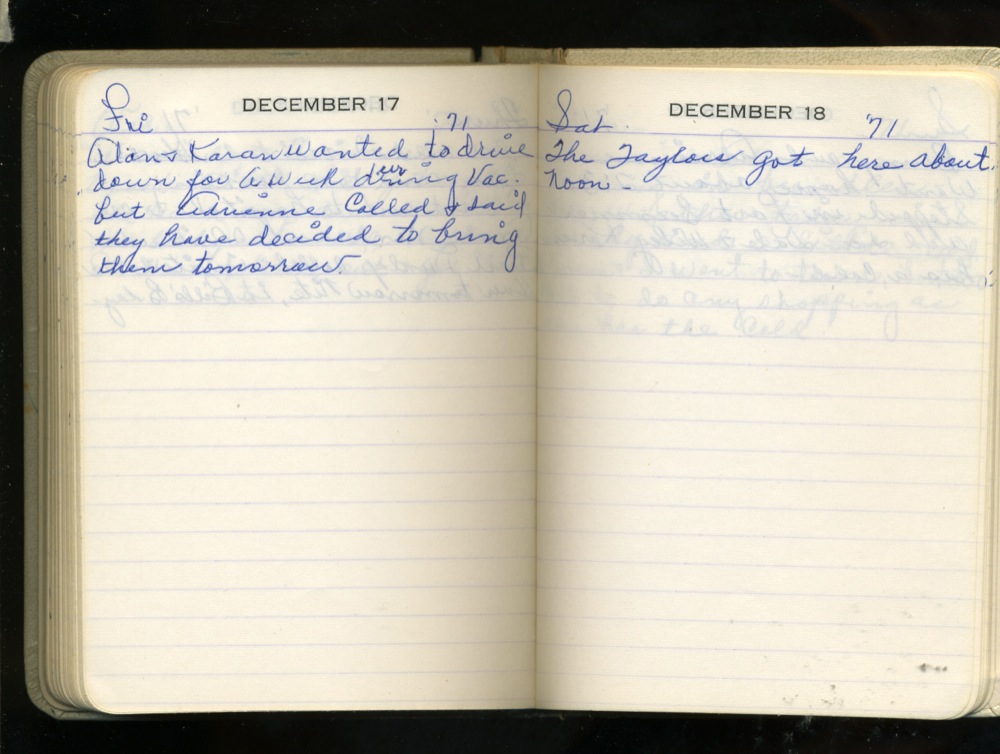 DECEMBER 17
Fri '71
Alan & Karan wanted to drive
down for a week during Vac.
but Adrienne Called & said
they have decided to bring
them tomorrow.
DECEMBER 18
Sat. '71
The Taylors got here about
noon.